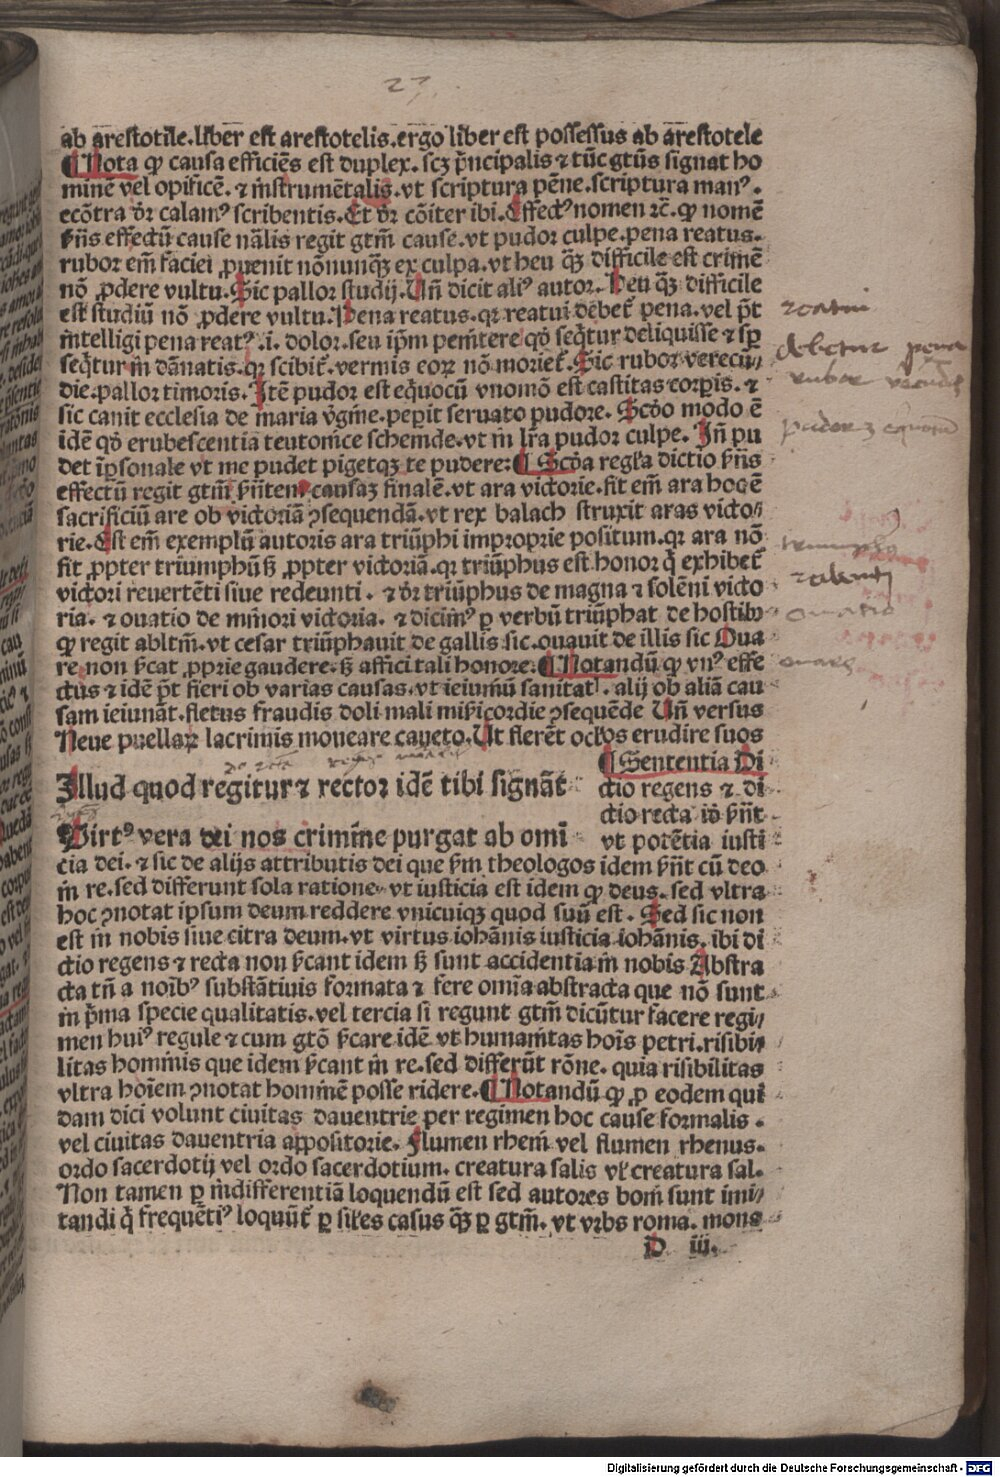 27
ab arestotile. liber est arestotelis. ergo liber est possessus ab arestotele
¶ Nota ꝙ causa efficiēs est duplex. scꝫ p̄ncipalis ⁊ tūc gtūs signat ho
minē vel opificē. ⁊ īnstrumētalis. vt scriptura pēne. scriptura manꝰ.
ecōtra dr̄ calamꝰ scribentis. Et dr̄ cōiter ibi. Effectꝰ nomen ⁊c̄. ꝙ nomē
s̄nīs effectū cause nālis regit gtm̄ cause. vt pudor culpe. pena reatus.
rubor em̄ faciei ꝓuenit nōnunqꝫ ex culpa. vt heu qꝫ difficile est crimē
nō ꝓdere vultu. Sic pallor studij. Un̄ dicit aliꝰ autor. Heu qꝫ difficile
est studiū nō ꝓdere vultu. Pena reatus. qꝛ reatui debet᷑ pena. vel p̄t
intelligi pena reatꝰ .i. dolor. seu ip̄m penitere qd̓ seq̄tur deliquisse ⁊ sꝑ
seq̄tur in dānatis. qꝛ scibit᷑. vermis eoꝝ nō moriet᷑. Sic rubor verecū
die. pallor timoris. Itē pudor est equocū vnomō est castitas corꝑis. ⁊
sic canit ecclesia de maria v̓gīne. peꝑit seruato pudore. Scd̓o modo ē
idē qd̓ erubescentia teutonice schemde. vt in lr̄a pudor culpe. In̄ pu
det īꝑsonale vt me pudet pigetqꝫ te pudere: ¶ Scd̓a regl̓a dictio s̄nīs
effectū regit gtm̄ s̄n̄tem causaꝫ finalē. vt ara victorie. fit em̄ ara hoc ē
sacrificiū are ob victoriā ꝯsequendā. vt rex balach struxit aras victo
rie. Est em̄ exemplū autoris ara triūphi improprie positum. qꝛ ara nō
fit ꝓpter triumphū sꝫ ꝓpter victoriā. qꝛ triūphus est honor q̄ exhibet᷑
victori reuertēti siue redeunti. ⁊ dr̄ triūphus de magna ⁊ solēni victo
ria. ⁊ ouatio de minori victoria. ⁊ dicimꝰ ꝑ verbū triūphat de hostibꝫ
ꝙ regit abltm̄. vt cesar triūphauit de gallis sic. ouauit de illis sic Oua
re non s̄cat ꝓprie gaudere. sꝫ affici tali honore: ¶ Notandū ꝙ vnꝰ effe
ctus ⁊ idē p̄t fieri ob varias causas. vt ieiuniū sanitatꝭ. alij ob aliā cau
sam ieiunāt. fletus fraudis doli mali mīsicordie ꝯsequēde Un̄ versus
Neue puellaꝝ lacrimis moueare caueto. Ut flerēt ocl̓os erudire suos
¶ Sententia Di
Illud quod regitur ⁊ rector idē tibi signāt
ctio regens ⁊ di
ctio recta iō s̄n̄t
Uirtꝰ vera dei nos crimine purgat ab omi
vt potētia iusti
cia dei. ⁊ sic de alijs attributis dei que s̄m theologos idem s̄n̄t cū deo
in re. sed differunt sola ratione. vt iusticia est idem ꝙ deus. sed vltra
hoc ꝯnotat ipsum deum reddere vnicuiqꝫ quod suū est. Sed sic non
est in nobis siue citra deum. vt virtus iohānis iusticia iohānis. ibi di
ctio regens ⁊ recta non s̄cant idem sꝫ sunt accidentia in nobis Abstra
cta tn̄ a noībꝰ substātiuis formata ⁊ fere omīa abstracta que nō sunt
in p̄ma specie qualitatis. vel tercia si regunt gtm̄ dicūtur facere regi
men huiꝰ regule ⁊ cum gtō s̄care idē vt humanitas hoīs petri. risibi
litas hominis que idem s̄cant in re. sed differūt rōne. quia risibilitas
vltra hoīem ꝯnotat hominē posse ridere. ¶ Notandū ꝙ ꝓ eodem qui
dam dici volunt ciuitas dauentrie per regimen hoc cause formalis.
vel ciuitas dauentria appositorie. Flumen rheni vel flumen rhenus.
ordo sacerdotij vel ordo sacerdotium. creatura salis vl̓ creatura sal.
Non tamen ꝑ indifferentiā loquendū est sed autores boni sunt imi
tandi q̄ frequētiꝰ loquūt᷑ ꝑ sil̓es casus qꝫ ꝑ gtm̄. vt vrbs roma. mons
D iii.
debetur pena
Digitalisierung gefördert durch die Deutsche Forschungsgemeinschaft - DFG